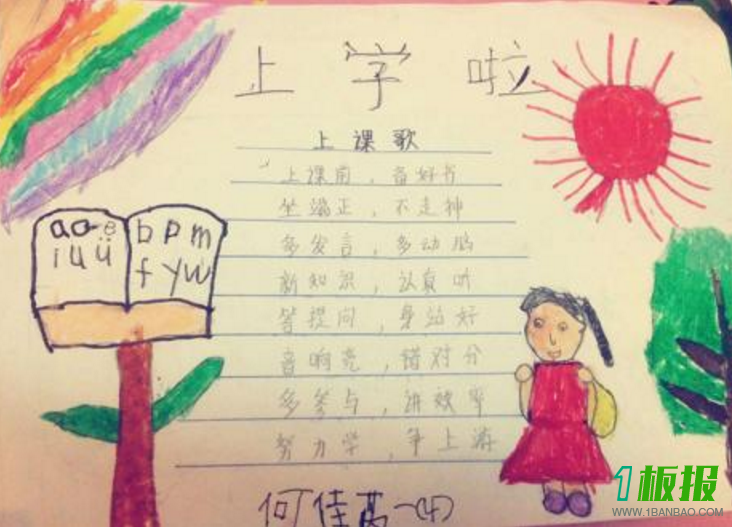 上学啦
上课歌
上课前，音好书
坐端正，不走神
多发言，多动脑
新知识，认真听
答提问，身站好
音响亮，错对分
多参与，讲效率
努力学，争上游
aoe bpm
iuü fyw
何佳高一(4)
1板报
WWW.1BANBAO.COM